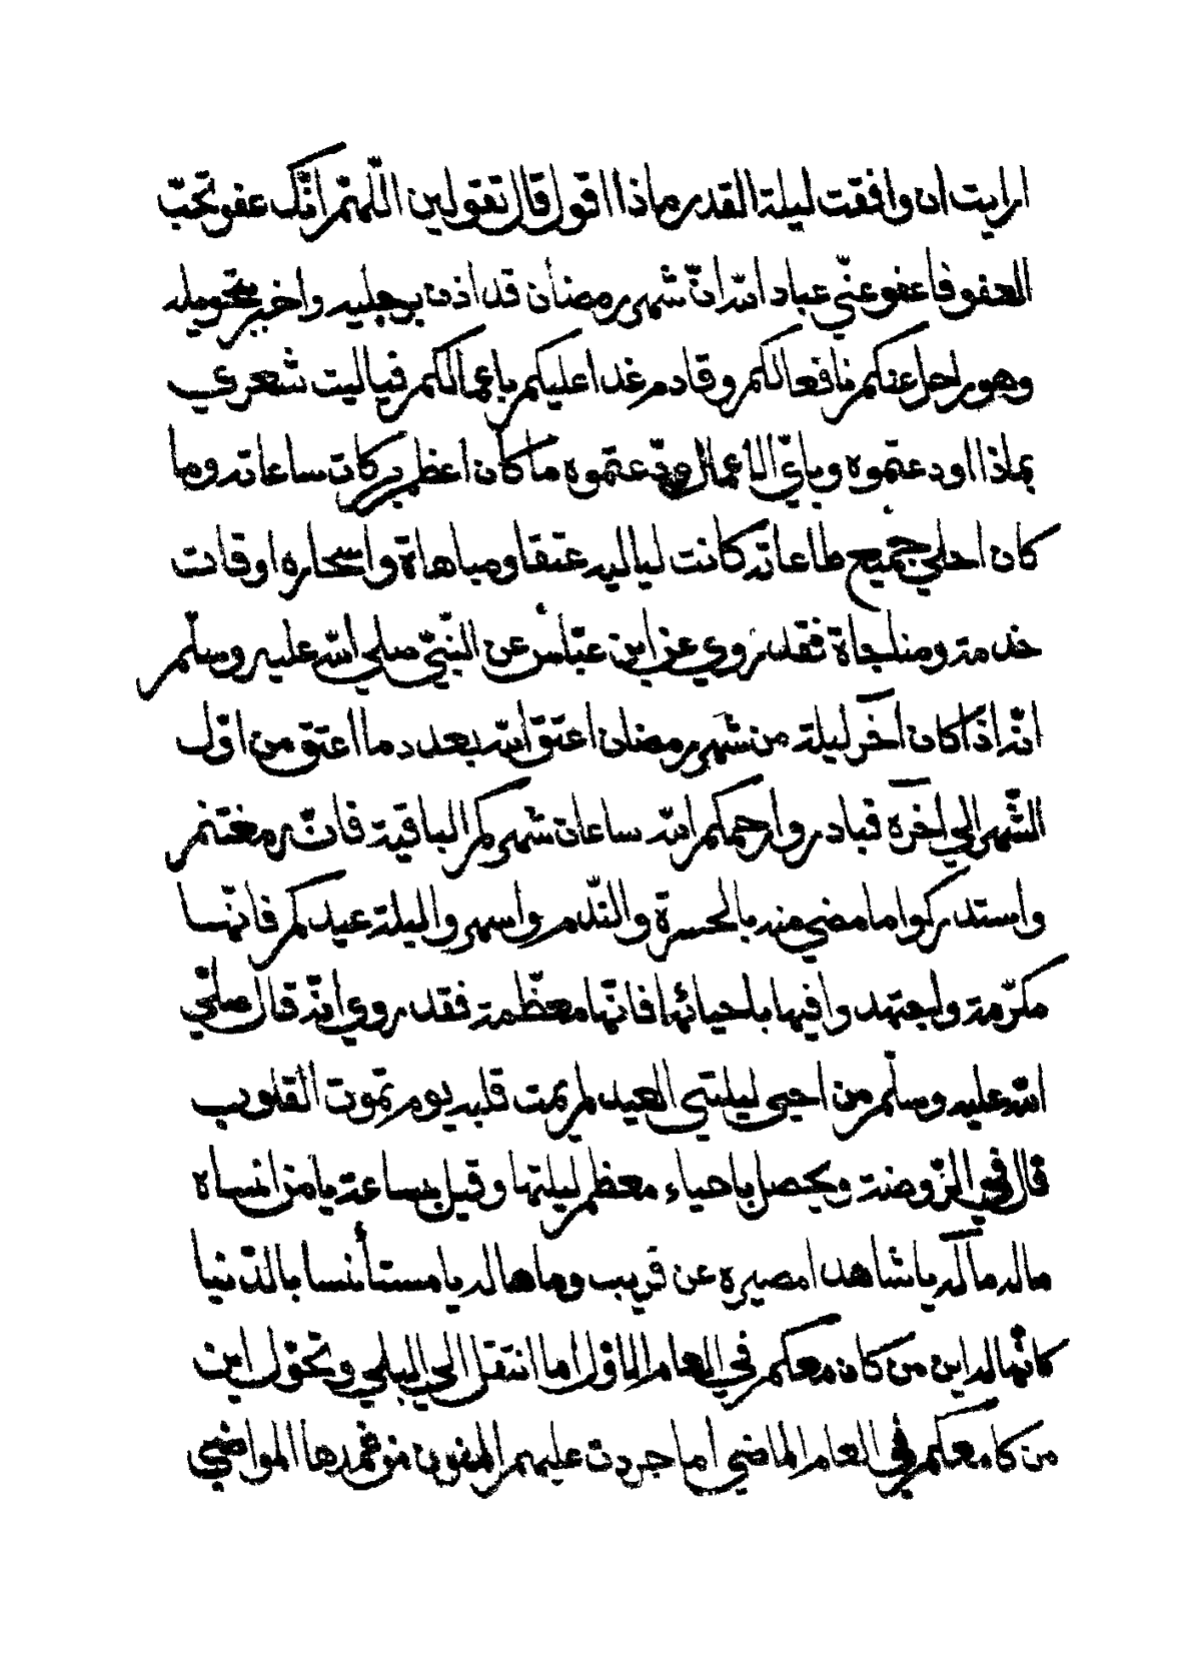 ارايت ان وافقت ليلة القدر ماذا اقول قال تقولين اللّهمّ انّك عفو تحبّ
العفو فاعفو عنّي عباد الله انّ شهر رمضان قد اذن برحليه واخبر بتحويله
وهو راحل عنكم بافعالكم وقادم غدا عليكم باعمالكم فياليت شعري
بماذا اودعتموه وباي الاعمال ودّعتموه ما كان اعظم بركات ساعاته وما
كان احلي جميع طاعاته كانت لياليه عتقا ومباهاة واسحاره اوقات
خدمة ومناجاة فقد روي عن ابن عبّاس عن النبّي صلي الله عليه وسلّم
انّه اذا كان آخر ليلة من شهر رمضان اعتق الله بعدد ما اعتق من اوّل
الشّهر الي آخره فبادروا رحمكم الله ساعات شهركم الباقية فانّه مغتنم
واستدركوا ما مضي منه بالحسرة والنّدم واسهروا ليلة عيدكم فانّها
مكرّمة وليجتهد وافيها باحيائها فانّها معظّمة فقد روي انّه قال صلّي
الله عليه وسلّم من احيى ليلتي العيد لم يمت قلبه يوم تموت القلوب
قال في الرّوضة ويحصل باحياء معظم ليلتها وقيل بساعة يا من انساه
ماله مآله يا شاهدا مصيره عن قريب وماهاله يا مستأنسا بالدّنيا
كأنّها له اين من كان معكم في العام الاول اما انتقل الي البلي وتحوّل اين
من كا معكم في العام الماضي اما جردت عليهم المنون من غمدها المواضي